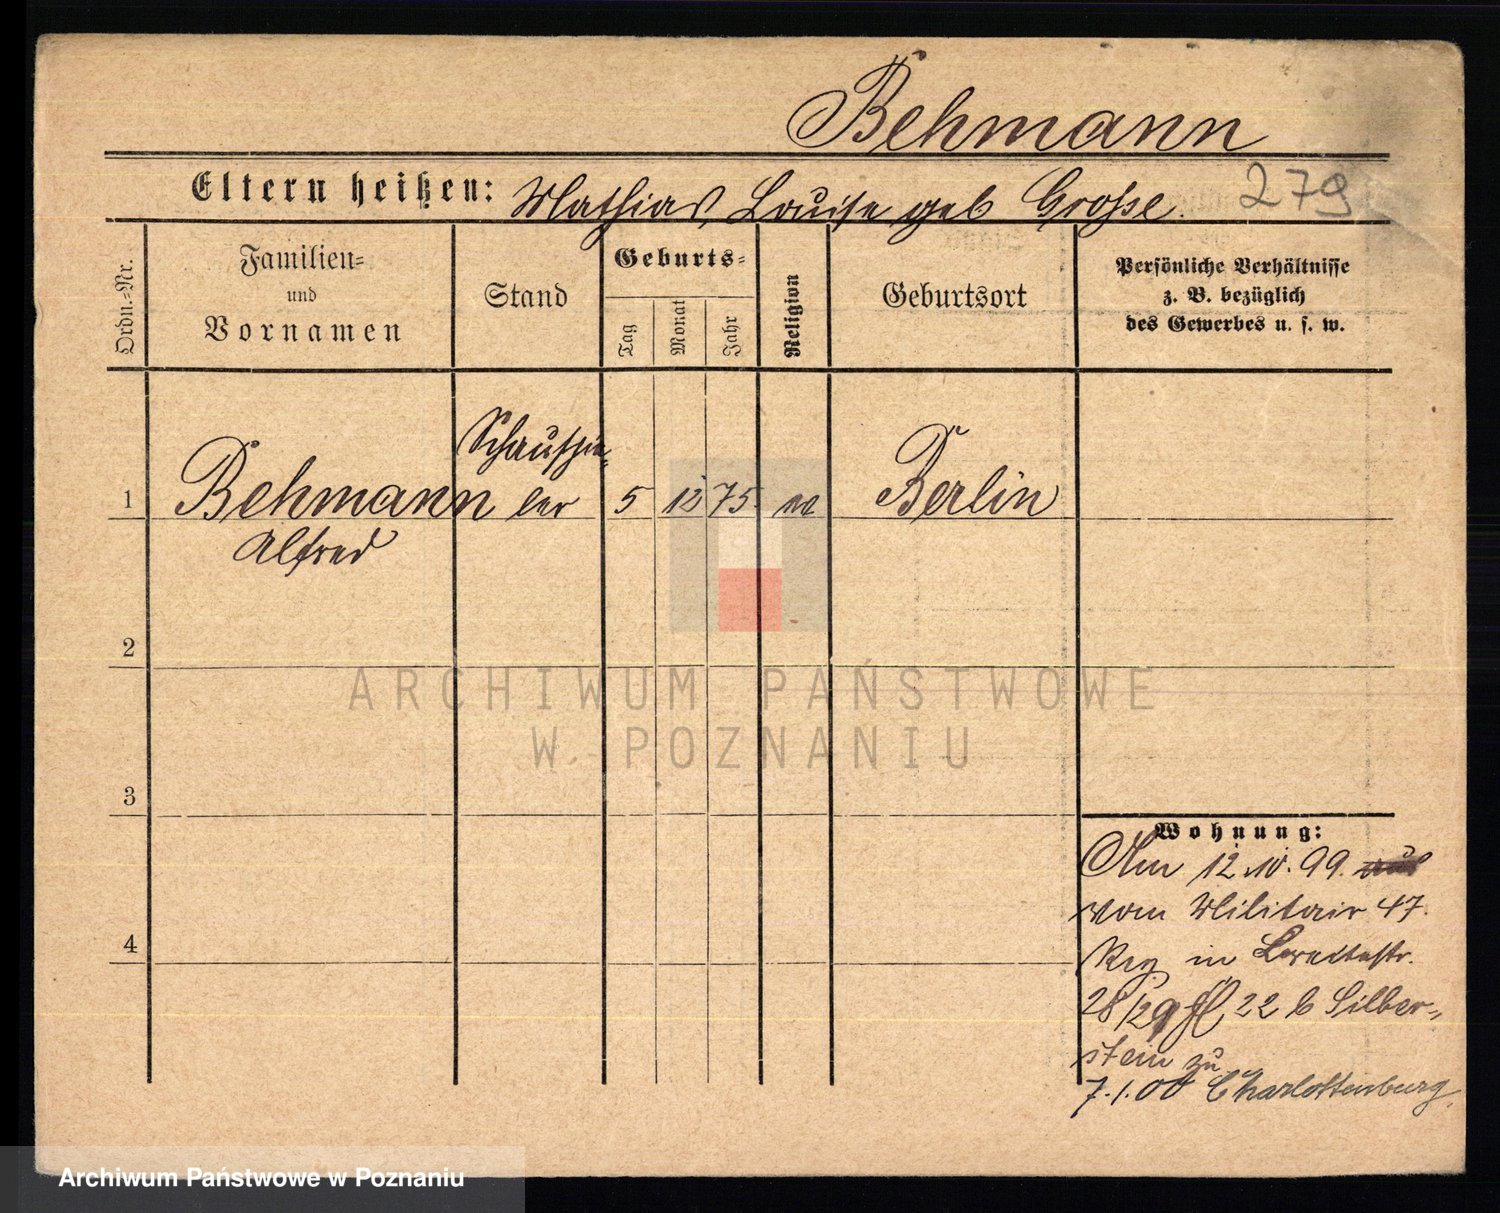 Behmann
Eltern heißen: Mathias Louise geb Große. 279
Ordn.-Nr.
Familien-
und
Vornamen
Stand
Geburts-
Tag
Monat
Jahr
Religion
Geburtsort
Persönliche Verhältnisse
z. B. bezüglich
des Gewerbes u. s. w.
Schauspie-
1 Behmann ler 5 12 75 Berlin
Alfred
2
ARCHIWUM PAŃSTWOWE
W POZNANIU
3
Wohnung:
Am 12.10.99.
vom Militair 47.
Reg in
28/29 22 b Silber-
stein zu
4
7.1.00 Charlottenburg.
Archiwum Państwowe w Poznaniu